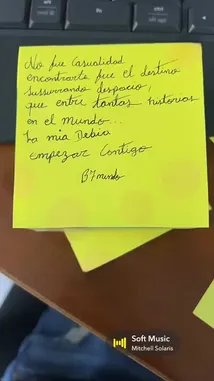 No fue Casualidad
encontrarte fue el destino
sussurrando despacio,
que entre tantas historias
en el mundo...
La mia Debia
empezar Contigo
B7mundo
Soft Music
Mitchell Solaris